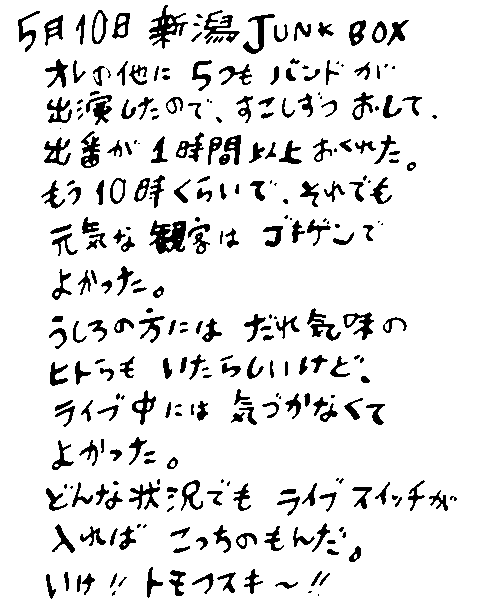 5月10日 新潟 JUNK BOX
オレの他に 5つも バンドが
出演したので、すこしずつ おして、
出番が 1時間以上おくれた。
もう10時くらいで、それでも
元気な観客は ゴキゲンで
よかった。
うしろの方には だれ気味の
ヒトらも いたらしいけど、
ライブ中には 気づかなくて
よかった。
どんな状況でも ライブスイッチが
入れば こっちのもんだ。
いけ!! トモフスキ〜!!